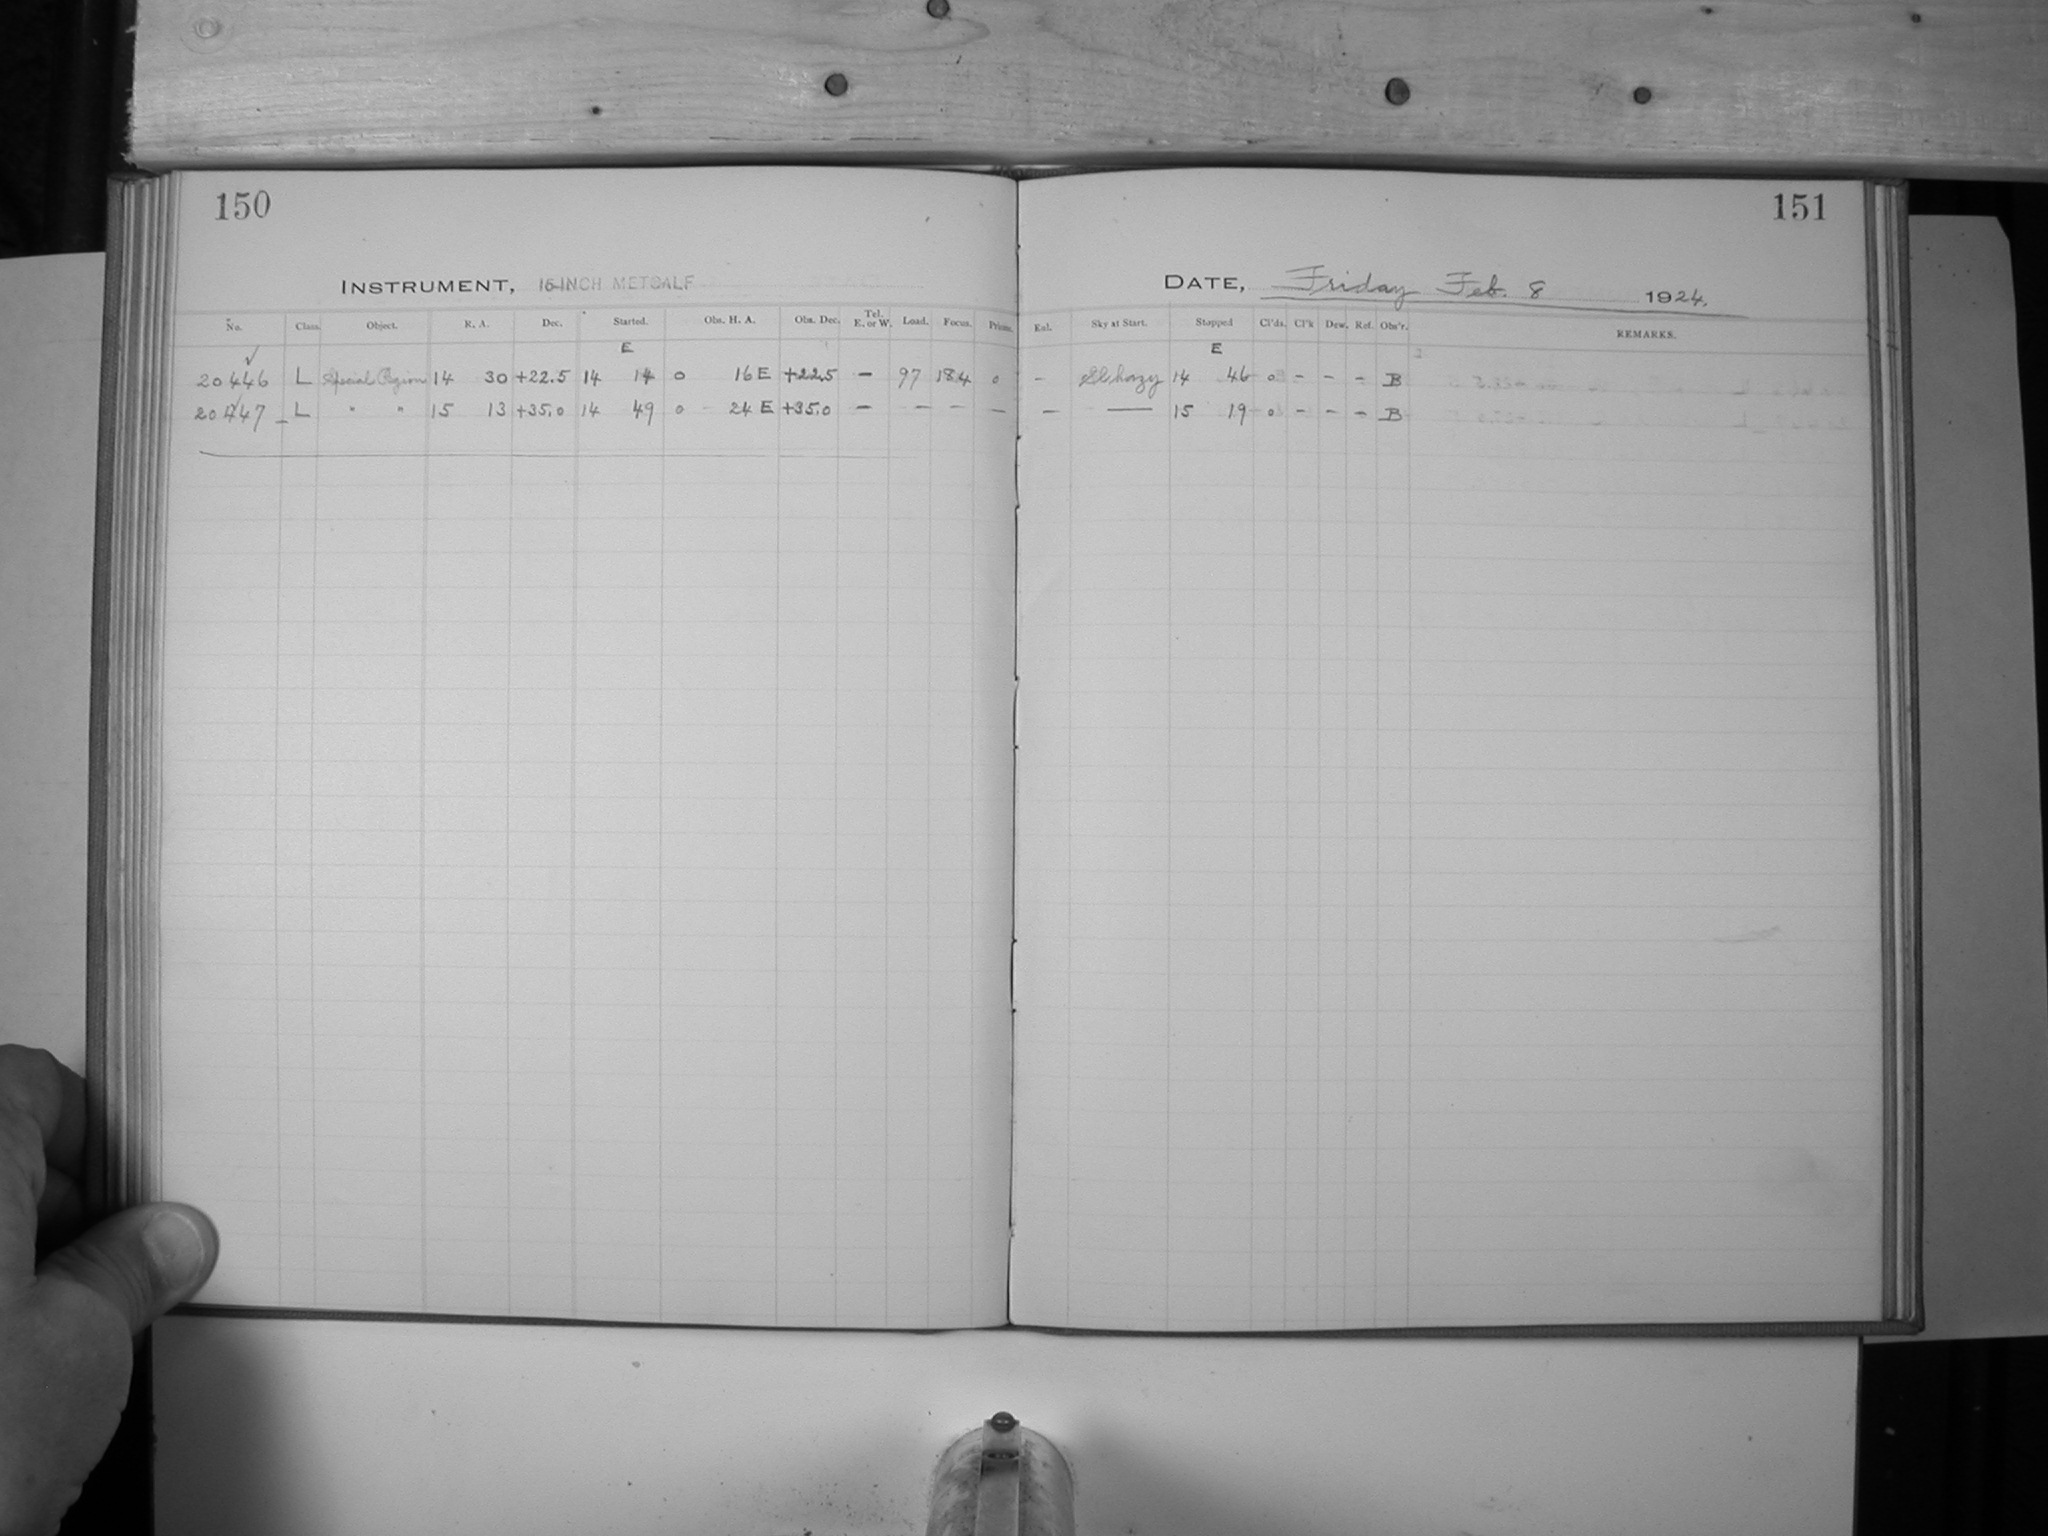 150
INSTRUMENT, 16-INCH METCALF
No. Class. Object. R. A. Dec. Started. Obs. H. A. Obs. Dec. Tel. E. or W. Load. Focus. Prisms.
E
20446 L Special Region 14 30 +22.5 14 14 0 16 E +22.5 – 97 18.4 0
20447 L " " 15 13 +35.0 14 49 0 24 E +35.0 – – – –
151
DATE, Friday Feb. 8 1924.
Sky at Start. Stopped Cl'ds. Cl'k Dew. Ref. Obs'r. REMARKS.
E
– Sl. hazy 14 46 0 – – – B
– — 15 19 0 – – – B